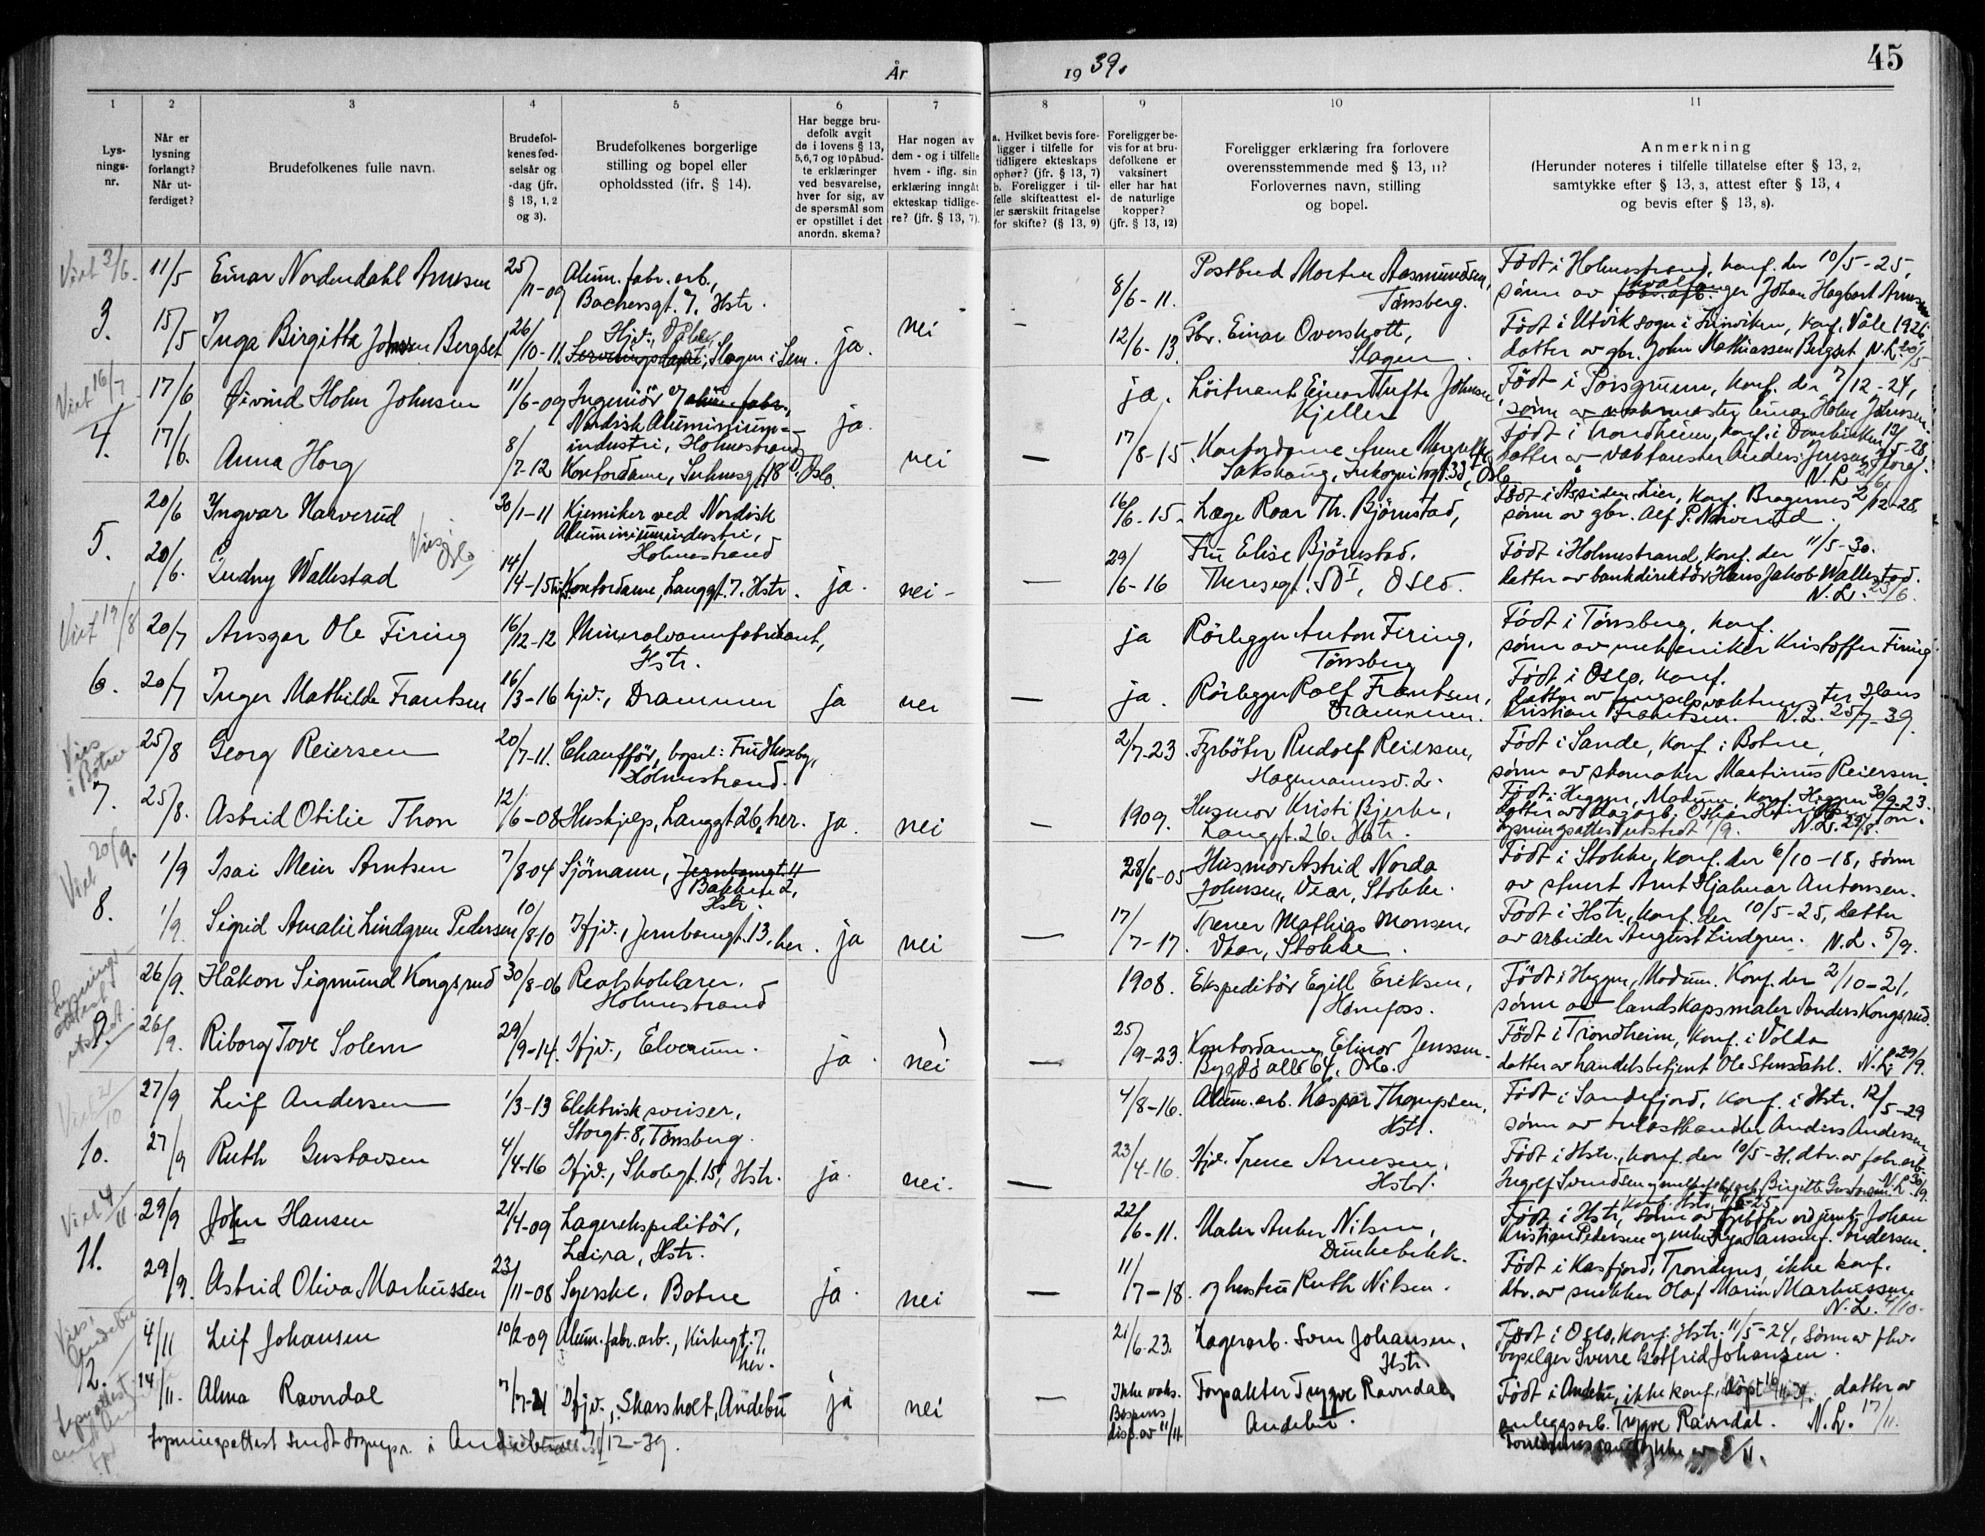 År
19 39.
45
1 2 3 4 5 6 7 8 9 10 11
Lys-
nings-
nr.
Når er
lysning
forlangt?
Når ut-
ferdiget?
Brudefolkenes fulle navn.
Brudefol-
kenes fød-
selsår og
-dag (jfr.
§ 13, 1, 2
og 3).
Brudefolkenes borgerlige
stilling og bopel eller
opholdssted (ifr. § 14).
Har begge bru-
defolk avgit
de i lovens § 13,
5,6,7 og 10 påbud-
te erklæringer
ved besvarelse,
hver for sig, av
de spørsmål som
er opstillet i det
anordn. skema?
Har nogen av
dem - og i tilfelle
hvem - iflg. sin
erklæring inngåt
ekteskap tidlige-
re? (jfr. § 13, 7).
a. Hvilket bevis fore-
ligger i tilfelle for
tidligere ekteskaps
ophør? (jfr. § 13, 7)
b. Foreligger i til-
felle skifteattest el-
ler særskilt fritagelse
for skifte? (§ 13, 9)
Foreligger be-
vis for at bru-
defolkene er
vaksinert
eller har hat
de naturlige
kopper?
(jfr. § 13, 12)
Foreligger erklæring fra forlovere
overensstemmende med § 13, 11?
Forlovernes navn, stilling
og bopel.
Anmerkning
(Herunder noteres i tilfelle tillatelse efter § 13, 2,
samtykke efter § 13, 3, attest efter § 13, 4
og bevis efter § 13, 8).
Viet 3/6.
3.
11/5 Einar Nordendahl Arnesen 25/11-09 Alum. fabr. arb.,
Bachersgt. 7. Hstr.
8/6-11. Postbud Morten Aasmundsen,
Tønsberg.
Født i Holmestrand, konf. der 10/5-25,
sønn av hvalfanger Johan Hagbart Arnesen
15/5 Inga Birgitte Johnsen Bergset 26/10-11. Hjv.
Slagen i Sem. ja. nei –
12/6-13. Gbr. Einar Overskott,
Slagen.
Født i Utvik sogn i Innviken, konf. Våle 1926,
datter av gbr. John Mathiassen Bergset N.L. 20/5
Viet 16/7
4.
17/6 Øivind Holm Johnsen 11/6-09 Ingeniör
Nordisk Aluminium-
industri, Holmestrand
ja. Löitnant Einar Tufte Johnsen
Kjeller
Født i Porsgrunn, konf. der 7/12-24,
sønn av Einar Holm Johnsen.
17/6. Anna Horg 8/7-12 Kontordame, Suhmsgt. 18, Oslo. ja. nei —
17/8-15. Kontordame Anne Margrethe
Født i Trondheim, konf. i Domkirken
datter av Anders Jensen Horg.
N.L.
5.
20/6 Ingvar Narverud 30/1-11 Kjemiker ved Nordisk
Aluminiumindustri,
Holmestrand
Vies Oslo
16/6-15. Læge Roar Th. Björnstad,
Lier, konf. Bragernes 2/12-28
sønn av gbr. Alf P. Narverud.
20/6. Gudny Wallestad 14/4-15 Kontordame, Langgt. 7. Hstr. ja. nei – —
29/6-16 Fru Elise Björnstad,
Theresegt. 50 I, Oslo.
Født i Holmestrand, konf. der 11/5-30.
datter av bankdirektör Hans Jakob Wallestad.
N.L. 23/6.
Viet 19/8
6.
20/7 Ansgar Ole Firing 16/12-12 Mineralvannfabrikant,
Hstr.
ja Rörlegger Anton Firing,
Tønsberg
Født i Tønsberg, konf.
sønn av mekaniker Kristoffer Firing
20/7 Inger Mathilde Frantsen 16/3-16 hjv., Drammen ja nei —
ja. Rörlegger Rolf Frantsen,
Drammen.
Født i Oslo, konf.
datter av Hans
Kristian Frantsen. N.L. 25/7-39.
Vies i Botne
7.
25/8 Georg Reiersen 20/7-11. Chaufför, bopel:
Holmestrand.
2/7-23. Fyrböter Rudolf Reiersen,
Hagemannsv. 2.
Født i Sande, konf. i Botne,
sønn av skomaker Martinus Reiersen.
25/8. Astrid Otilie Thon 12/6-08 Hushjelp, Langgt 26, her. ja. nei —
1909. Husmor Kristi Bjerke,
Langgt. 26. Hstr.
Født i Heggen, Modum, konf. Heggen 30/9-23.
lysningsattest utstedt 1/9. N.L. 29/8.
Viet 20/9.
8.
1/9 Isai Meier Arntsen 7/8-04 Sjömann, Jernbanegt. 11
Bakken 2,
Hstr.
28/6-05 Husmor Astrid Norda
Johnsen, Vear, Stokke.
Født i Stokke, konf. der 6/10-18, sønn
av stuert Arnt Hjalmar Antonsen.
1/9. Sigrid Amalie Lindgren Pedersen 10/8-10 Hjv., Jernbanegt. 13, her. ja nei —
17/7-17. Trener Mathias Monsen,
Vear, Stokke.
Født i Hstr., konf. der 10/5-25, datter
av arbeider August Lindgren. N.L. 5/9.
Lysningsattest utstedt.
9.
26/9. Håkon Sigmund Kongsrud 30/8-06 Realskolelærer,
Holmestrand
1908. Ekspeditör Egill Eriksen,
Hønefoss.
Født i Heggen, Modum. Konf. der 2/10-21,
sønn av landskapsmaler Anders Kongsrud.
26/9. Riborg Tove Solem 29/9-14. Hjv., Elverum. ja. nei —
25/9-23. Kontordame Elinor Jenssen.
Bygdö allé 64, Oslo.
Født i Trondheim, konf. i Volda
datter av handelsbetjent Ole Stensdahl. N.L. 29/9.
Viet 21/10
10.
27/9 Leif Andersen 1/3-13 Elektrisk sveiser,
Storgt. 8, Tønsberg.
4/8-16. Alum. arb. Kaspar Thompsen,
Hstr.
Født i Sandefjord, konf. i Hstr. 12/5-29
sønn av trelasthandler Anders Andersen
27/9 Ruth Gustavsen 4/4-16 Hjv., Skolegt. 15, Hstr. ja. nei. —
23/4-16. Hjv. Irene Arnesen,
Hstr.
Født i Hstr., konf. der 10/5-31, dtr. av fabr. arb.
Ingolf Svendsen og Birgitte Gustavsen. N.L. 30/9.
Viet 4/11.
11.
29/9 John Hansen 21/4-09 Lagerekspeditör,
Leira, Hstr.
22/6-11. Maler Anker Nilsen,
Dunkebekk.
Konf. Hstr. 11/5-25
Født i Hstr, sønn av Johan
Kristian Pedersen og Hansine Andersen.
29/9. Astrid Oliva Markussen 23/11-08 Syerske, Botne ja. nei —
11/7-18. og hustru Ruth Nilsen.
Født i Kasfjord, Trondenes, ikke konf.
dtr. av snekker Olaf Marin Markussen
N.L. 4/10.
Vies i Andebu
12.
4/11 Leif Johansen 10/2-09 Alum. fabr. arb., Kirkegt. 7,
her.
21/6-23. Lagerarb. Sven Johansen,
Hstr.
Født i Oslo, konf. Hstr. 11/5-24, sønn av
Sverre Gotfrid Johansen.
14/11. Alma Ravndal Hjv., Skarsholt, Andebu ja nei —
Ikke vaks.
Bispens
disp. av 11/11
Forpakter Trygve Ravndal
Andebu.
Født i Andebu, ikke konf., døpt datter av
anleggsarb. Trygve Ravndal. N.L. 17/11.
lysningsattest sendt sogнepr. i Andebu 7/12-39.